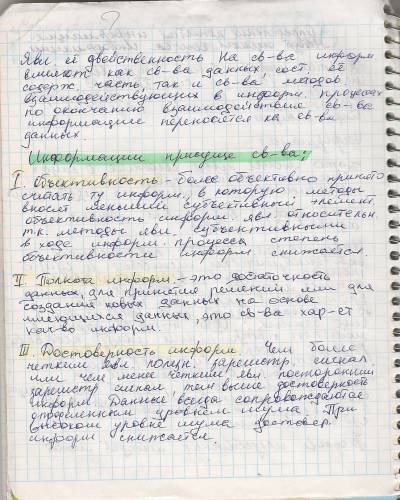 явл. её двойственность. На св-ва информ
влияют как св-ва данных, сост. её
содерж. часть, так и св-ва методов,
взаимодействующих в информ. процессах
по окончании взаимодействие св-ва
информации переносятся на св-ва
данных
Информации присущие св-ва:
I. Объективность - более объективно принято
считать ту информ, в которую методы
вносят меньший субъективный элемент.
объективность информ. явл. относительн.
т.к. методы явл. субъективными
в ходе информ. процесса степень
объективности информ. снижается
II. Полнота информ. - это достаточность
данных, для принятия решений или для
создания новых данных на основе
имеющихся данных, это св-ва хар-ет
кач-во информ.
III. Достоверность информ. Чем более
четким явл. полезн. зарегистр. сигнал
или чем менее четким явл. посторонний
зарегистр сигнал тем выше достоверность
информ. Данные всегда сопровождаются
определенным уровнем шума. При
высоком уровне шума достовер.
информ снижается.